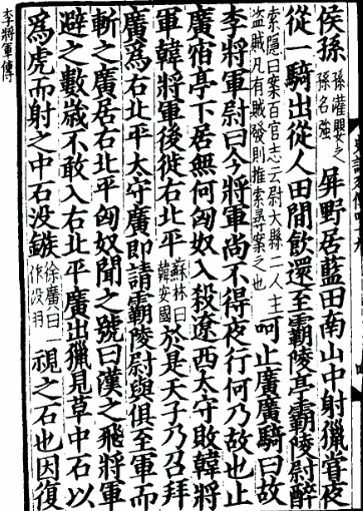 侯孫孫灌嬰之孫名強屏野居藍田南山中射獵嘗夜
從一騎出從人田間飲還至霸陵亭霸陵尉醉
索隱曰案百官志云尉大縣二人主盜賊凡有賊發則推索尋案之也呵止廣廣騎曰故
李將軍尉曰今將軍尚不得夜行何乃故也止
廣宿亭下居無何匈奴入殺遼西太守敗韓將
軍韓將軍後徙右北平蘇林曰韓安國於是天子乃召拜
廣爲右北平太守廣即請霸陵尉與俱至軍而
斬之廣居右北平匈奴聞之號曰漢之飛將軍
避之數歲不敢入右北平廣出獵見草中石以
爲虎而射之中石没鏃徐廣曰一作没羽視之石也因復
李將軍傳